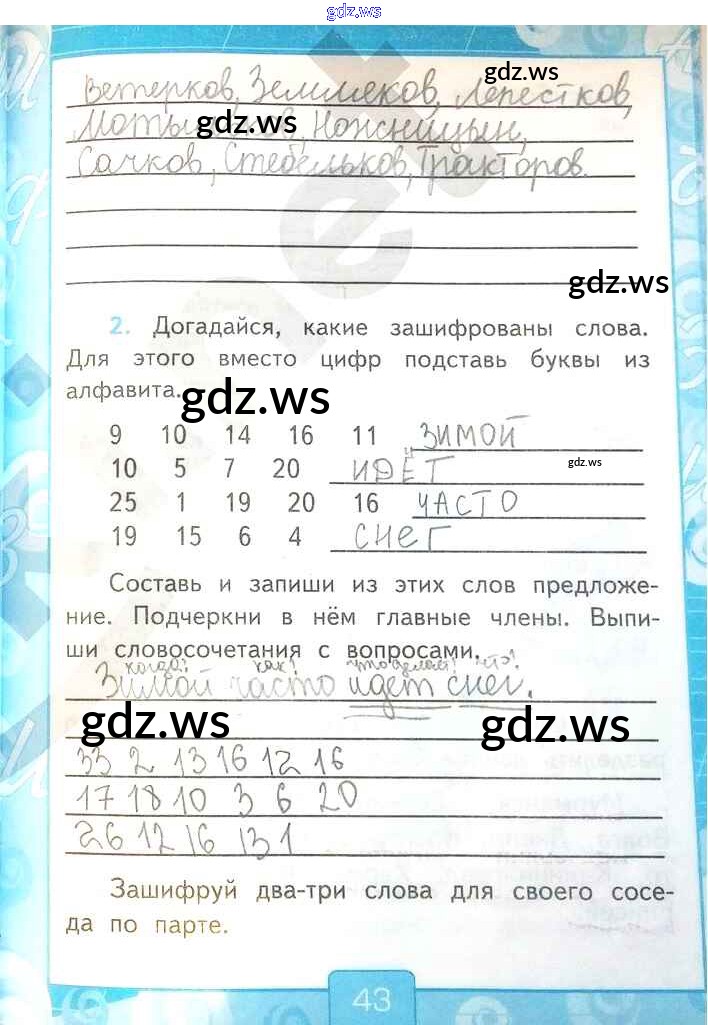 gdz.ws
Ветерков, Земляков, Лепестков, gdz.ws
gdz.ws Ножницын,
Сачков, Стебельков, Тракторов.
gdz.ws
2. Догадайся, какие зашифрованы слова.
Для этого вместо цифр подставь буквы из
алфавита. gdz.ws
9 10 14 16 11 ЗИМОЙ
10 5 7 20 ИДЁТ gdz.ws
25 1 19 20 16 ЧАСТО
19 15 6 4 СНЕГ
Составь и запиши из этих слов предложе-
ние. Подчеркни в нём главные члены. Выпи-
ши словосочетания с вопросами.
когда? как? что делает? что?
Зимой часто идет снег.
gdz.ws gdz.ws
33 2 13 16 12 16
17 18 10 3 6 20
26 12 16 13 1
Зашифруй два-три слова для своего сосе-
да по парте.
43